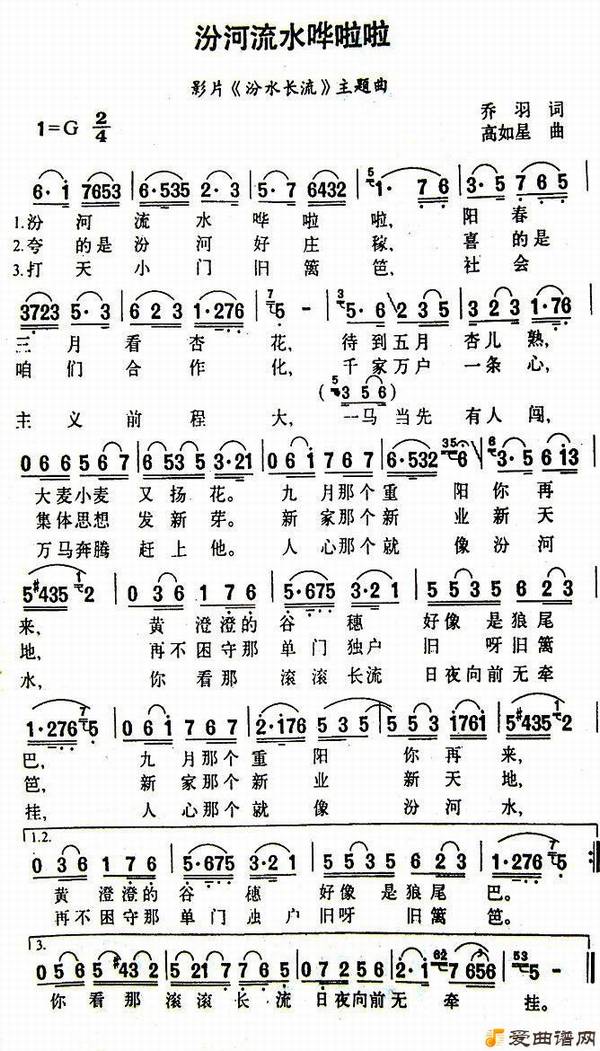 汾河流水哗啦啦
影片《汾水长流》主题曲
1=G 2/4
乔羽 词
高如星 曲
6·i 7653 6·535 2·3 5·7 6432 5 1· 7 6 3·5 7 6 5
1.汾河流水哗啦啦, 阳春
2.夸的是汾河好庄稼, 喜的是
3.打天小门旧篱笆, 社会
3723 5·3 6 2 3 1·276 7 5 - 3 5 2 3 5 3 2 3 1·76
三月看杏花, 待到五月杏儿熟,
咱们合作化, 千家万户一条心,
(5 3 5 6)
主义前程大, 一马当先有人闯,
0 6 6 5 6 7 6 5 3 5 3·2 1 0 6 i 7 6 7 6·532 35 6 3 5 6 i 3
大麦小麦又扬花。九月那个重阳你再
集体思想发新芽。新家那个新业新天
万马奔腾赶上他。人心那个就像汾河
5#435 1 2 0 3 6 1 7 6 5·675 3·2 1 5 5 3 5 6 2 3
来, 黄澄澄的谷穗好像是狼尾
地, 再不困守那单门独户旧呀旧篱
水, 你看那滚滚长流日夜向前无牵
1·276 7 5 0 6 i 7 6 7 2·i76 5 3 5 i76i 5#435 1 2
巴, 九月那个重阳你再来,
笆, 新家那个新业新天地,
挂, 人心那个就像汾河水,
1.2.
0 3 6 1 7 6 5·675 3·2 1 5 5 3 5 6 2 3 1·276 7 5
黄澄澄的谷穗好像是狼尾巴。
再不困守那单门独户旧呀旧篱笆。
3.
0 5 6 5 #4 3 2 5 2 1 7 6 5 6 0 5 6 5 6 2· i 62 7 656 53 5 -
你看那滚滚长流日夜向前无牵挂。
爱曲谱网